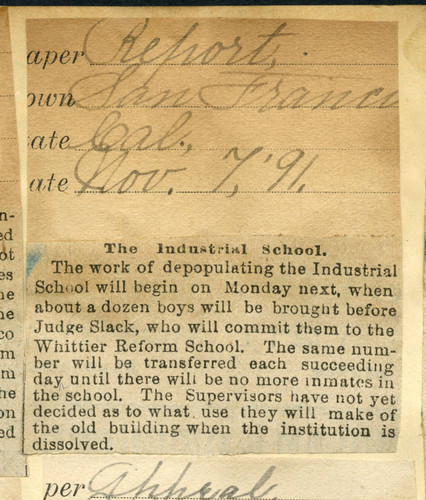 aper Report,
own San Franci
tate Cal.,
ate Nov. 7, '91.
The Industrial School.
The work of depopulating the Industrial
School will begin on Monday next, when
about a dozen boys will be brought before
Judge Slack, who will commit them to the
Whittier Reform School. The same num-
ber will be transferred each succeeding
day until there will be no more inmates in
the school. The Supervisors have not yet
decided as to what use they will make of
the old building when the institution is
dissolved.
per Appeal
n-
ed
ot
es
ne
he
co
m
m
he
on
ed